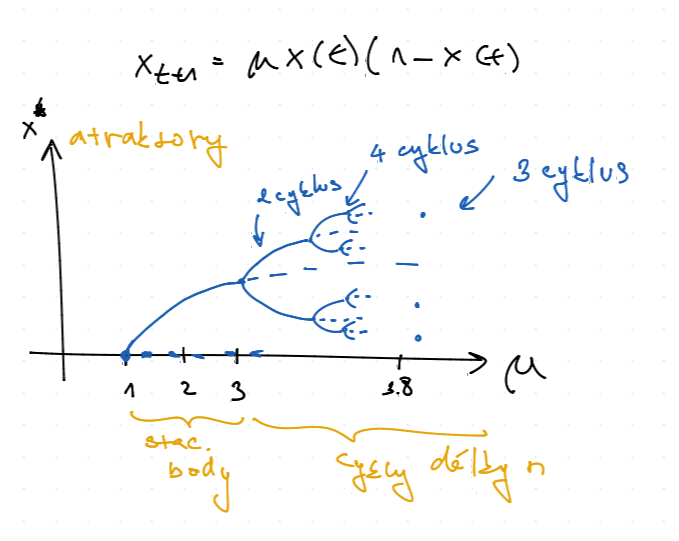 x_{t+1} = μ x(t)(1 - x(t)
x*
atraktory
2 cyklus
4 cyklus
3 cyklus
1 2 3 3.8
μ
stac.
body
cykly délky n